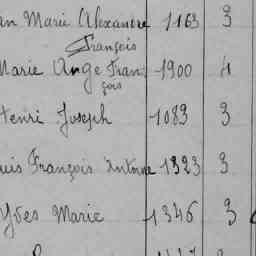 an Marie Alexandre 1163 3
François
Marie Ange Fran- 1900 4
çois
Henri Joseph 1083 3
uis François Antoine 1323 3
Yves Marie 1346 3